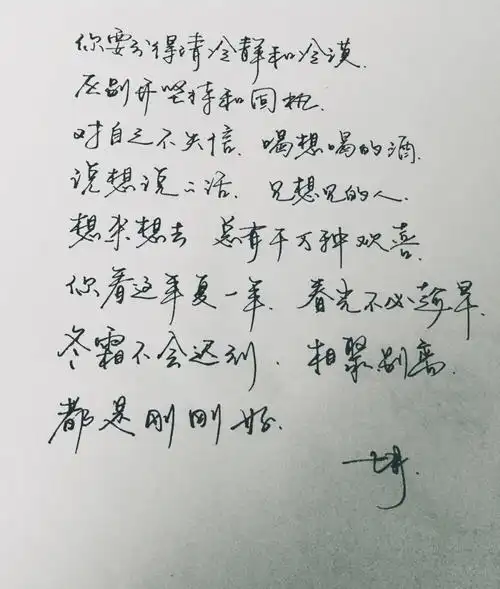 你要分得清冷静和冷漠.
区别开坚持和固执.
对自己不失信. 喝想喝的酒.
说想说的话. 见想见的人.
想来想去 总有千万种欢喜.
你看这年复一年. 春光不必趁早.
冬霜不会迟到. 相聚别离.
都是刚刚好.